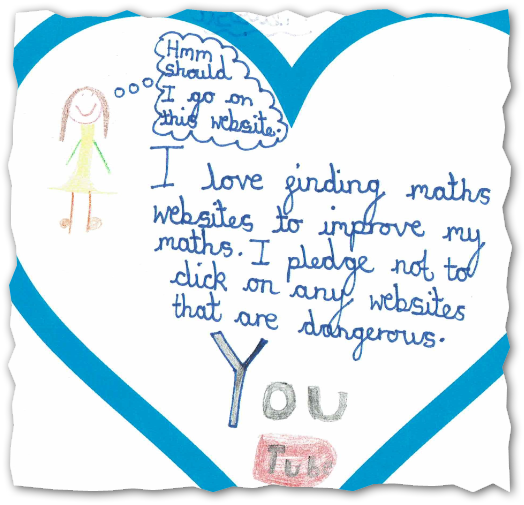 Hmm
should
I go on
this website.
I love finding maths
websites to improve my
maths. I pledge not to
click on any websites
that are dangerous.
You
Tube